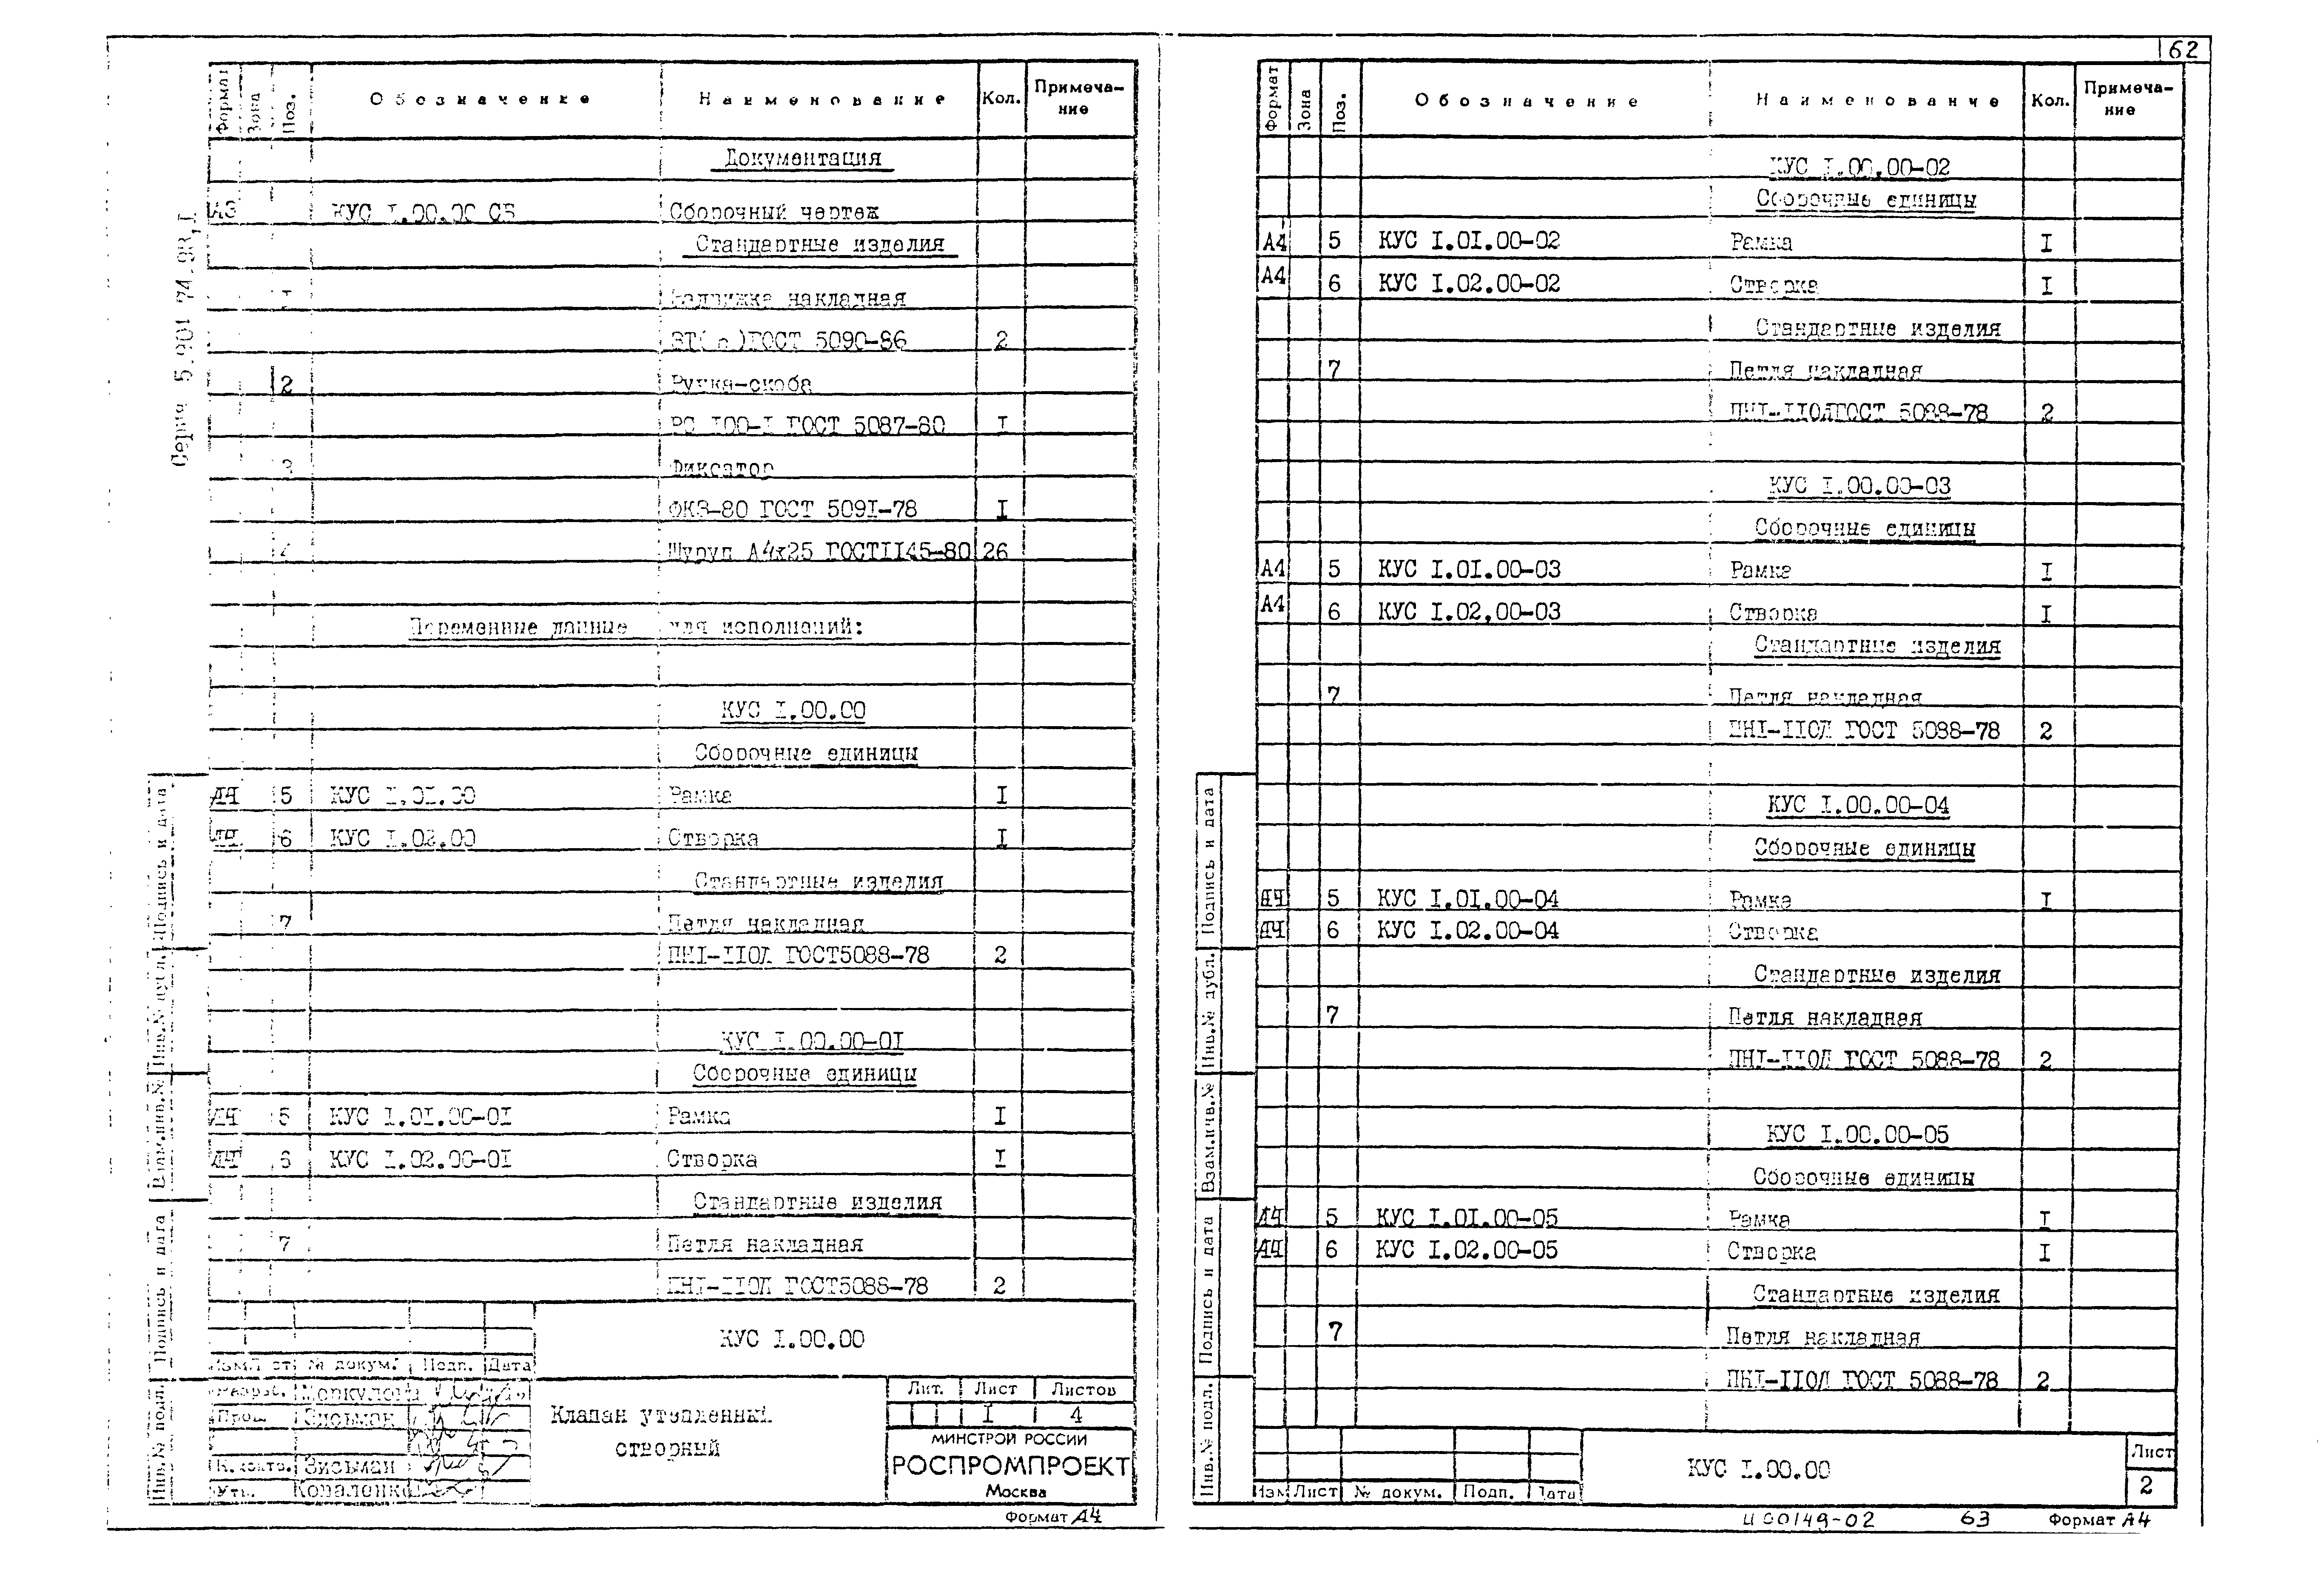 62
Серия 5.901
Формат Зона Поз. Обозначение Наименование Кол. Примечание
Документация
А3 КУС I.00.00 СБ Сборочный чертеж
Стандартные изделия
накладная
ГОСТ 5090-86 2
2 Ручка-скоба
РС 100-I ГОСТ 5087-80 I
3 Фиксатор
ФК3-80 ГОСТ 5091-78 I
4 Шуруп А4х25 ГОСТ1145-80 26
Переменные данные для исполнений:
КУС I.00.00
Сборочные единицы
А4 5 КУС I.01.00 Рамка I
А4 6 КУС I.02.00 Створка I
Стандартные изделия
7 Петля накладная
ПНI-IIОЛ ГОСТ5088-78 2
КУС I.00.00-01
Сборочные единицы
А4 5 КУС I.01.00-01 Рамка I
А4 6 КУС I.02.00-01 Створка I
Стандартные изделия
7 Петля накладная
ПНI-IIОЛ ГОСТ5088-78 2
Подпись и дата
Инв.№ дубл.
Взам.инв.№
Подпись и дата
Инв.№ подл.
КУС I.00.00
№ докум. Подп. Дата
Разраб. Меркулова
Пров. Зисьман
К.контр. Зисьман
Утв. Коваленко
Клапан утепленный
створный
Лит. Лист Листов
I 4
МИНСТРОЙ РОССИИ
РОСПРОМПРОЕКТ
Москва
Формат А4
Формат Зона Поз. Обозначение Наименование Кол. Примечание
КУС I.00.00-02
Сборочные единицы
А4 5 КУС I.01.00-02 Рамка I
А4 6 КУС I.02.00-02 Створка I
Стандартные изделия
7 Петля накладная
ПНI-IIОЛГОСТ 5088-78 2
КУС I.00.00-03
Сборочные единицы
А4 5 КУС I.01.00-03 Рамка I
А4 6 КУС I.02.00-03 Створка I
Стандартные изделия
7 Петля накладная
ПНI-IIОЛ ГОСТ 5088-78 2
КУС I.00.00-04
Сборочные единицы
А4 5 КУС I.01.00-04 Рамка I
А4 6 КУС I.02.00-04 Створка
Стандартные изделия
7 Петля накладная
ПНI-IIОЛ ГОСТ 5088-78 2
КУС I.00.00-05
Сборочные единицы
А4 5 КУС I.01.00-05 Рамка I
А4 6 КУС I.02.00-05 Створка I
Стандартные изделия
7 Петля накладная
ПНI-IIОЛ ГОСТ 5088-78 2
Подпись и дата
Инв.№ дубл.
Взам.инв.№
Подпись и дата
Инв.№ подл.
Изм Лист № докум. Подп. Дата
КУС I.00.00
Лист
2
63 Формат А4